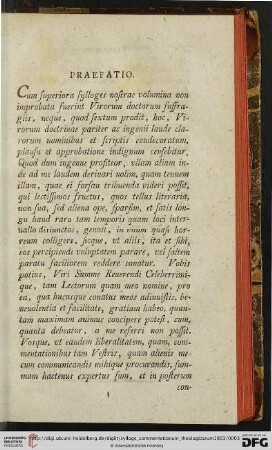 PRAEFATIO.
Cum superiora sylloges nostrae volumina non
improbata fuerint Virorum doctorum suffra-
giis, neque, quod sextum prodit, hoc, Vi-
rorum doctrinae pariter ac ingenii laude cla-
rorum nominibus et scriptis condecoratum,
plausu et approbatione indignum censebitur.
Quod dum ingenue profiteor, vllam aliam in-
de ad me laudem deriuari nolim, quam tenuem
illam, quae ei forsan tribuenda videri possit,
qui lectissimos fructus, quos tellus literaria,
non sua, sed aliena ope, sparsim, et satis lon-
go haud raro tam temporis quam loci inter-
vallo disiunctos, genuit, in vnum quasi hor-
reum colligere, sicque, vt aliis, ita et sibi,
eos percipiendi voluptatem parare, vel saltem
paratu faciliorem reddere conatur. Vobis
potius, Viri Summe Reverendi Celeberrimi-
que, tam Lectorum quam meo nomine, pro
ea, qua hucusque conatus meos adiuuistis, be-
neuolentia et facilitate, gratiam habeo, quan-
tam maximam animus concipere potest, cum,
quanta debeatur, a me referri non possit.
Vosque, vt eandem liberalitatem, quam, com-
mentationibus tam Vestris, quam alienis me-
cum communicandis mihique procurandis, sum-
mam hactenus expertus sum, et in posterum
1
con-
UNIVERSITÄTS-BIBLIOTHEK HEIDELBERG
Gefördert durch die
DFG